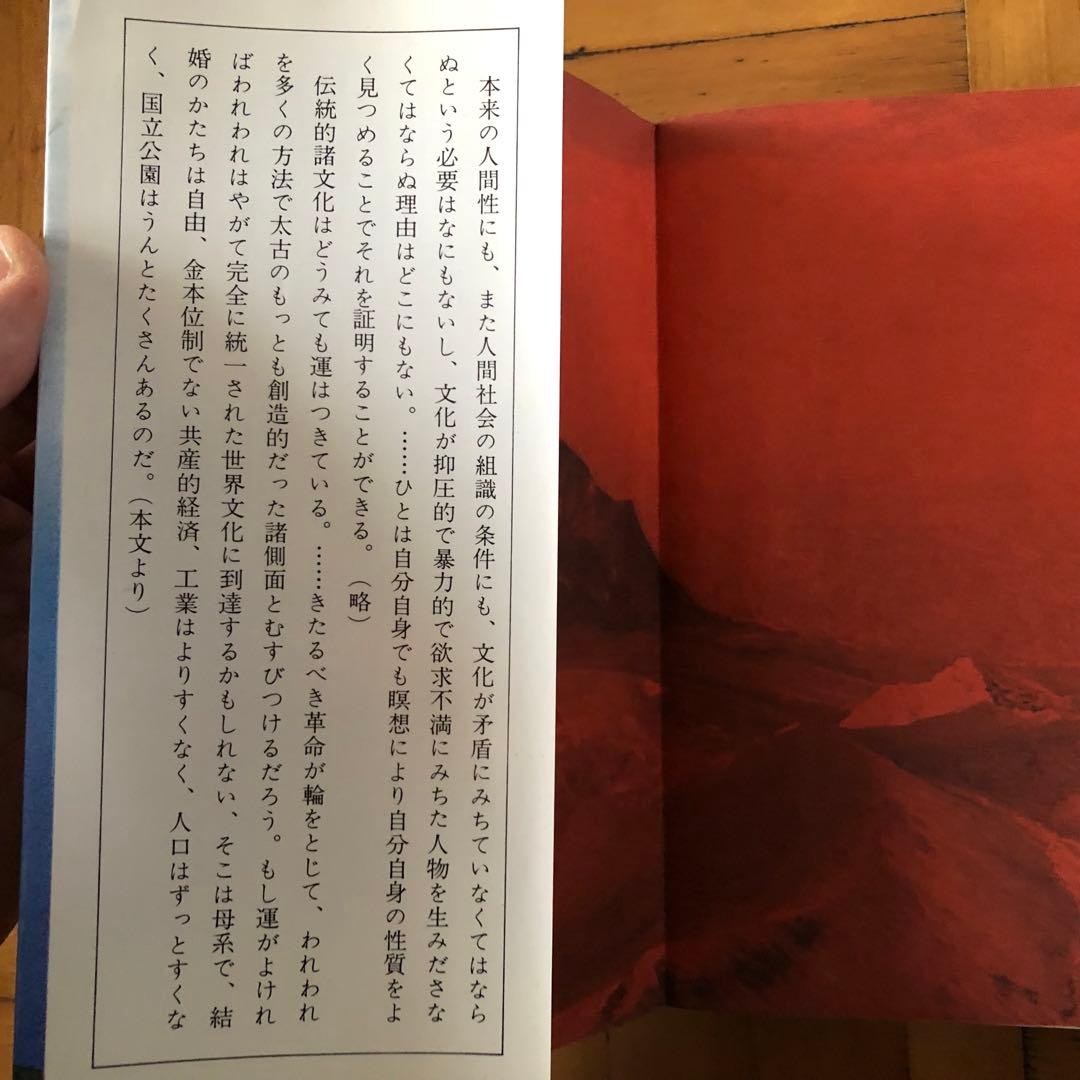 本来の人間性にも、また人間社会の組識の条件にも、文化が矛盾にみちていなくてはなら
ぬという必要はなにもないし、文化が抑圧的で暴力的で欲求不満にみちた人物を生みださな
くてはならぬ理由はどこにもない。……ひとは自分自身でも瞑想により自分自身の性質をよ
く見つめることでそれを証明することができる。（略）
伝統的諸文化はどうみても運はつきている。……きたるべき革命が輪をとじて、われわれ
を多くの方法で太古のもっとも創造的だった諸側面とむすびつけるだろう。もし運がよけれ
ばわれわれはやがて完全に統一された世界文化に到達するかもしれない、そこは母系で、結
婚のかたちは自由、金本位制でない共産的経済、工業はよりすくなく、人口はずっとすくな
く、国立公園はうんとたくさんあるのだ。（本文より）